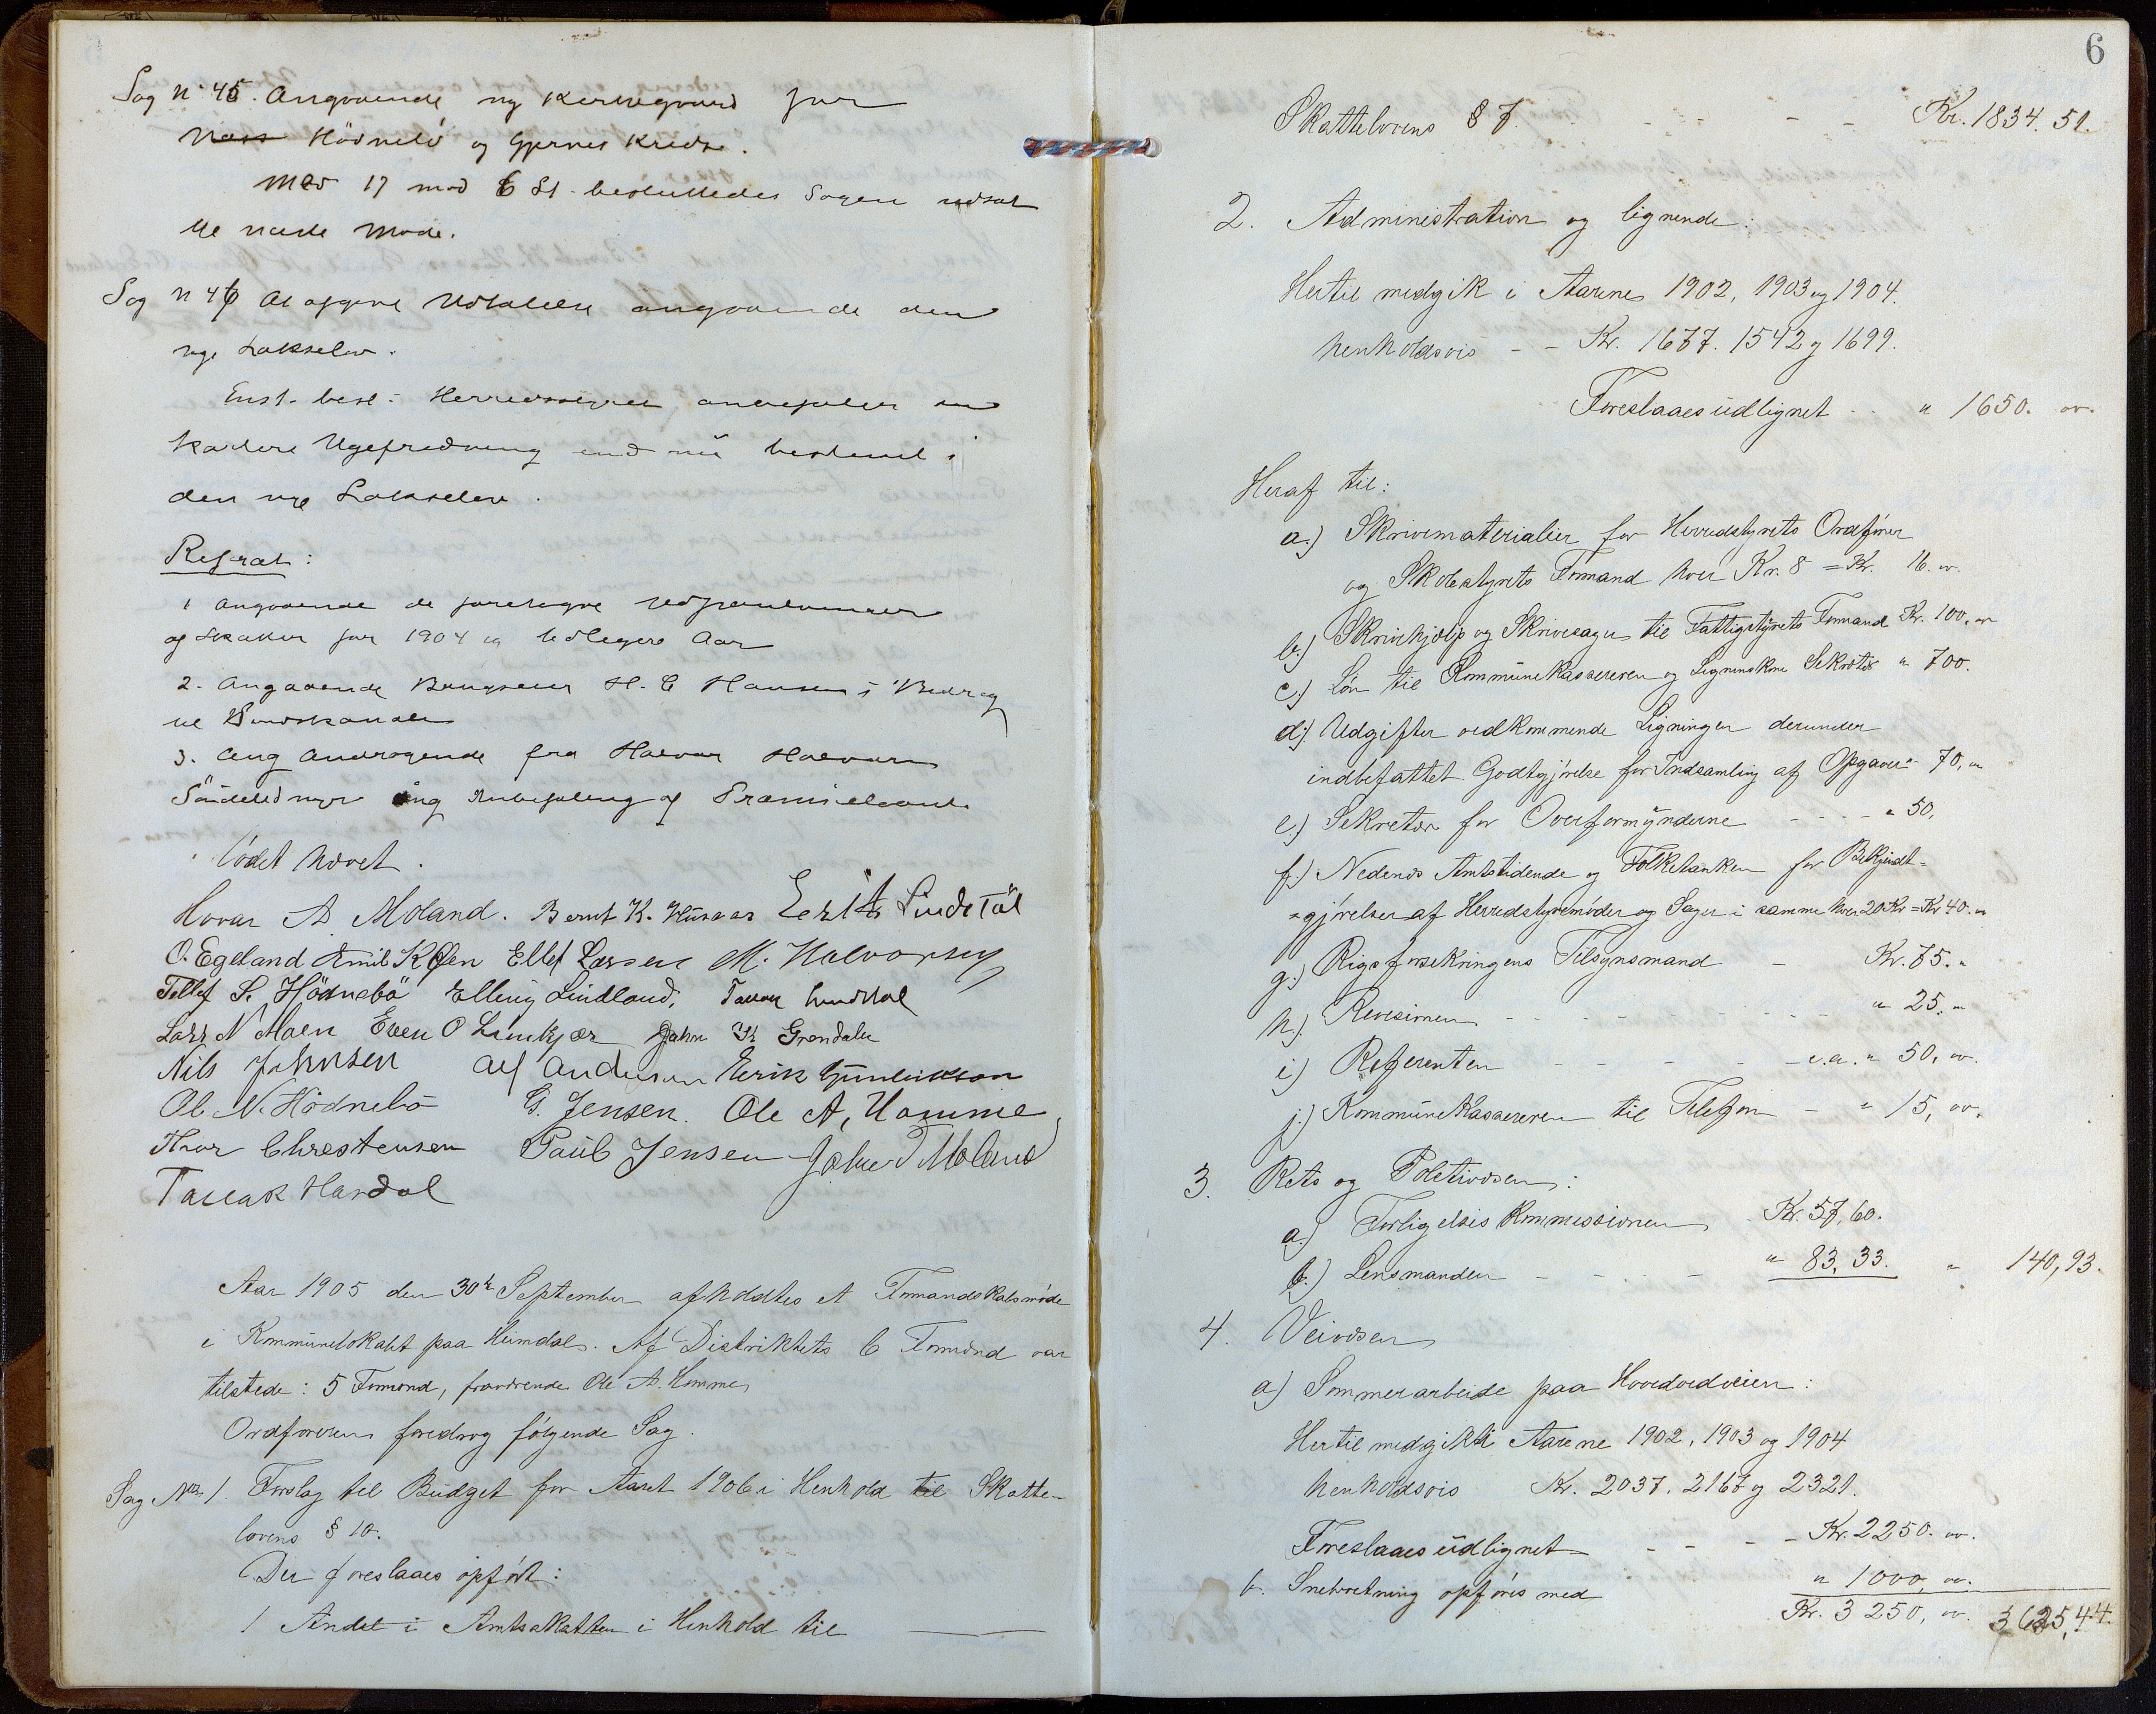 Sag N. 45. Angaaende ny Kirkegaard for
Hödnebö og Gjernes Kreds.
Med 17 mod 6 St. besluttedes Sagen udsat
til næste Møde.
Sag N 46 At afgive Udtalelse angaaende den
nye Lakselov.
Enst. besl: Herredsstyret anbefaler en
kortere Ugefredning end nu bestemt i
den nye Lakselov.
Referat:
1 Angaaende de foretagne Udpantninger
af Skatter for 1904 og tidligere Aar
2. Angaaende Brugseier H. C Hansens Bidrag
til
3. Ang Andragende fra Halvor Halvorsen
ang Anbefaling af
Mödet hævet.
Hovar A Moland. Bernt K. Husaas Lindtöl
O. Egeland Emil Ellef Larsen M. Halvorsen
Tellef S. Hödnebö Elling Lindland, Tallak Lundstøl
Lars N Moen Even O Limkjær John K Grøndalen
Nils Johnsen Alf Andersen Eerik Gunleikson
Ol. N. Hödnebö G. Jensen. Ole A, Homme
Thor Chrestensen Paul Jensen T Moland
Tallak Hardal
Aar 1905 den 30te September afholdtes et Formandskabsmøde
i Kommunelokalet paa Heimdal. Af Distriktets 6 Formænd var
tilstede: 5 Formænd, fraværende Ole A. Homme
Ordføreren foredrog følgende Sag.
Sag No. 1. Forslag til Budget for Aaret 1906 i Henhold til Skatte-
lovens § 10.
Der foreslaaes opført:
1 Andel i Amtsskatten i Henhold til
6
Skattelovens § 7. - - - - Kr. 1834. 51.
2. Administration og lignende:
Hertil medgik i Aarene 1902, 1903 og 1904.
henholdsvis - - Kr. 1677. 1542 og 1699.
Foreslaaes udlignet - - " 1650. oo.
Heraf til:
a.) Skrivematerialier for Herredstyrets Ordfører
og Skolestyrets Formand hver Kr. 8 = Kr. 16. oo.
b.) Skrivehjælp og Skrivesager til Fattigstyrets Formand Kr. 100. oo
c.) Løn til Kommunekassereren og Lignins Sekretær " 700.
d.) Udgifter vedkommende Ligningen derunder
indbefattet Godtgjørelse for Indsamling af Opgaver " 70, "
e.) Sekretær for Overformynderne - - - - " 50,
f.) Nedenes Amtstidende og Folketanken for Bekjendt-
-gjørelser af Herredstyremøder og Sager i samme hver 20 Kr = Kr 40. "
g.) Rigsforsikringens Tilsynsmand - Kr. 75. "
h.) Revisionen - - - - - - - " 25. "
i) Referenten - - - - - c.a. " 50, oo.
j.) Kommunekassereren til Telefon - " 15, oo.
3. Rets og Politivæsen:
a.) Forligelseskommissionen Kr. 57, 60.
b.) Lensmanden - - - - " 83, 33. " 140,93.
4. Veivæsen
a) Sommerarbeide paa Hovedveien:
Hertil medgik i Aarene 1902, 1903 og 1904
henholdsvis Kr. 2037. 2167 og 2321.
Foreslaaes udlignet - - - - Kr. 2250. oo.
b. Snebrøtning opføres med " 1000, oo.
Kr. 3 250, oo. 3625,44.